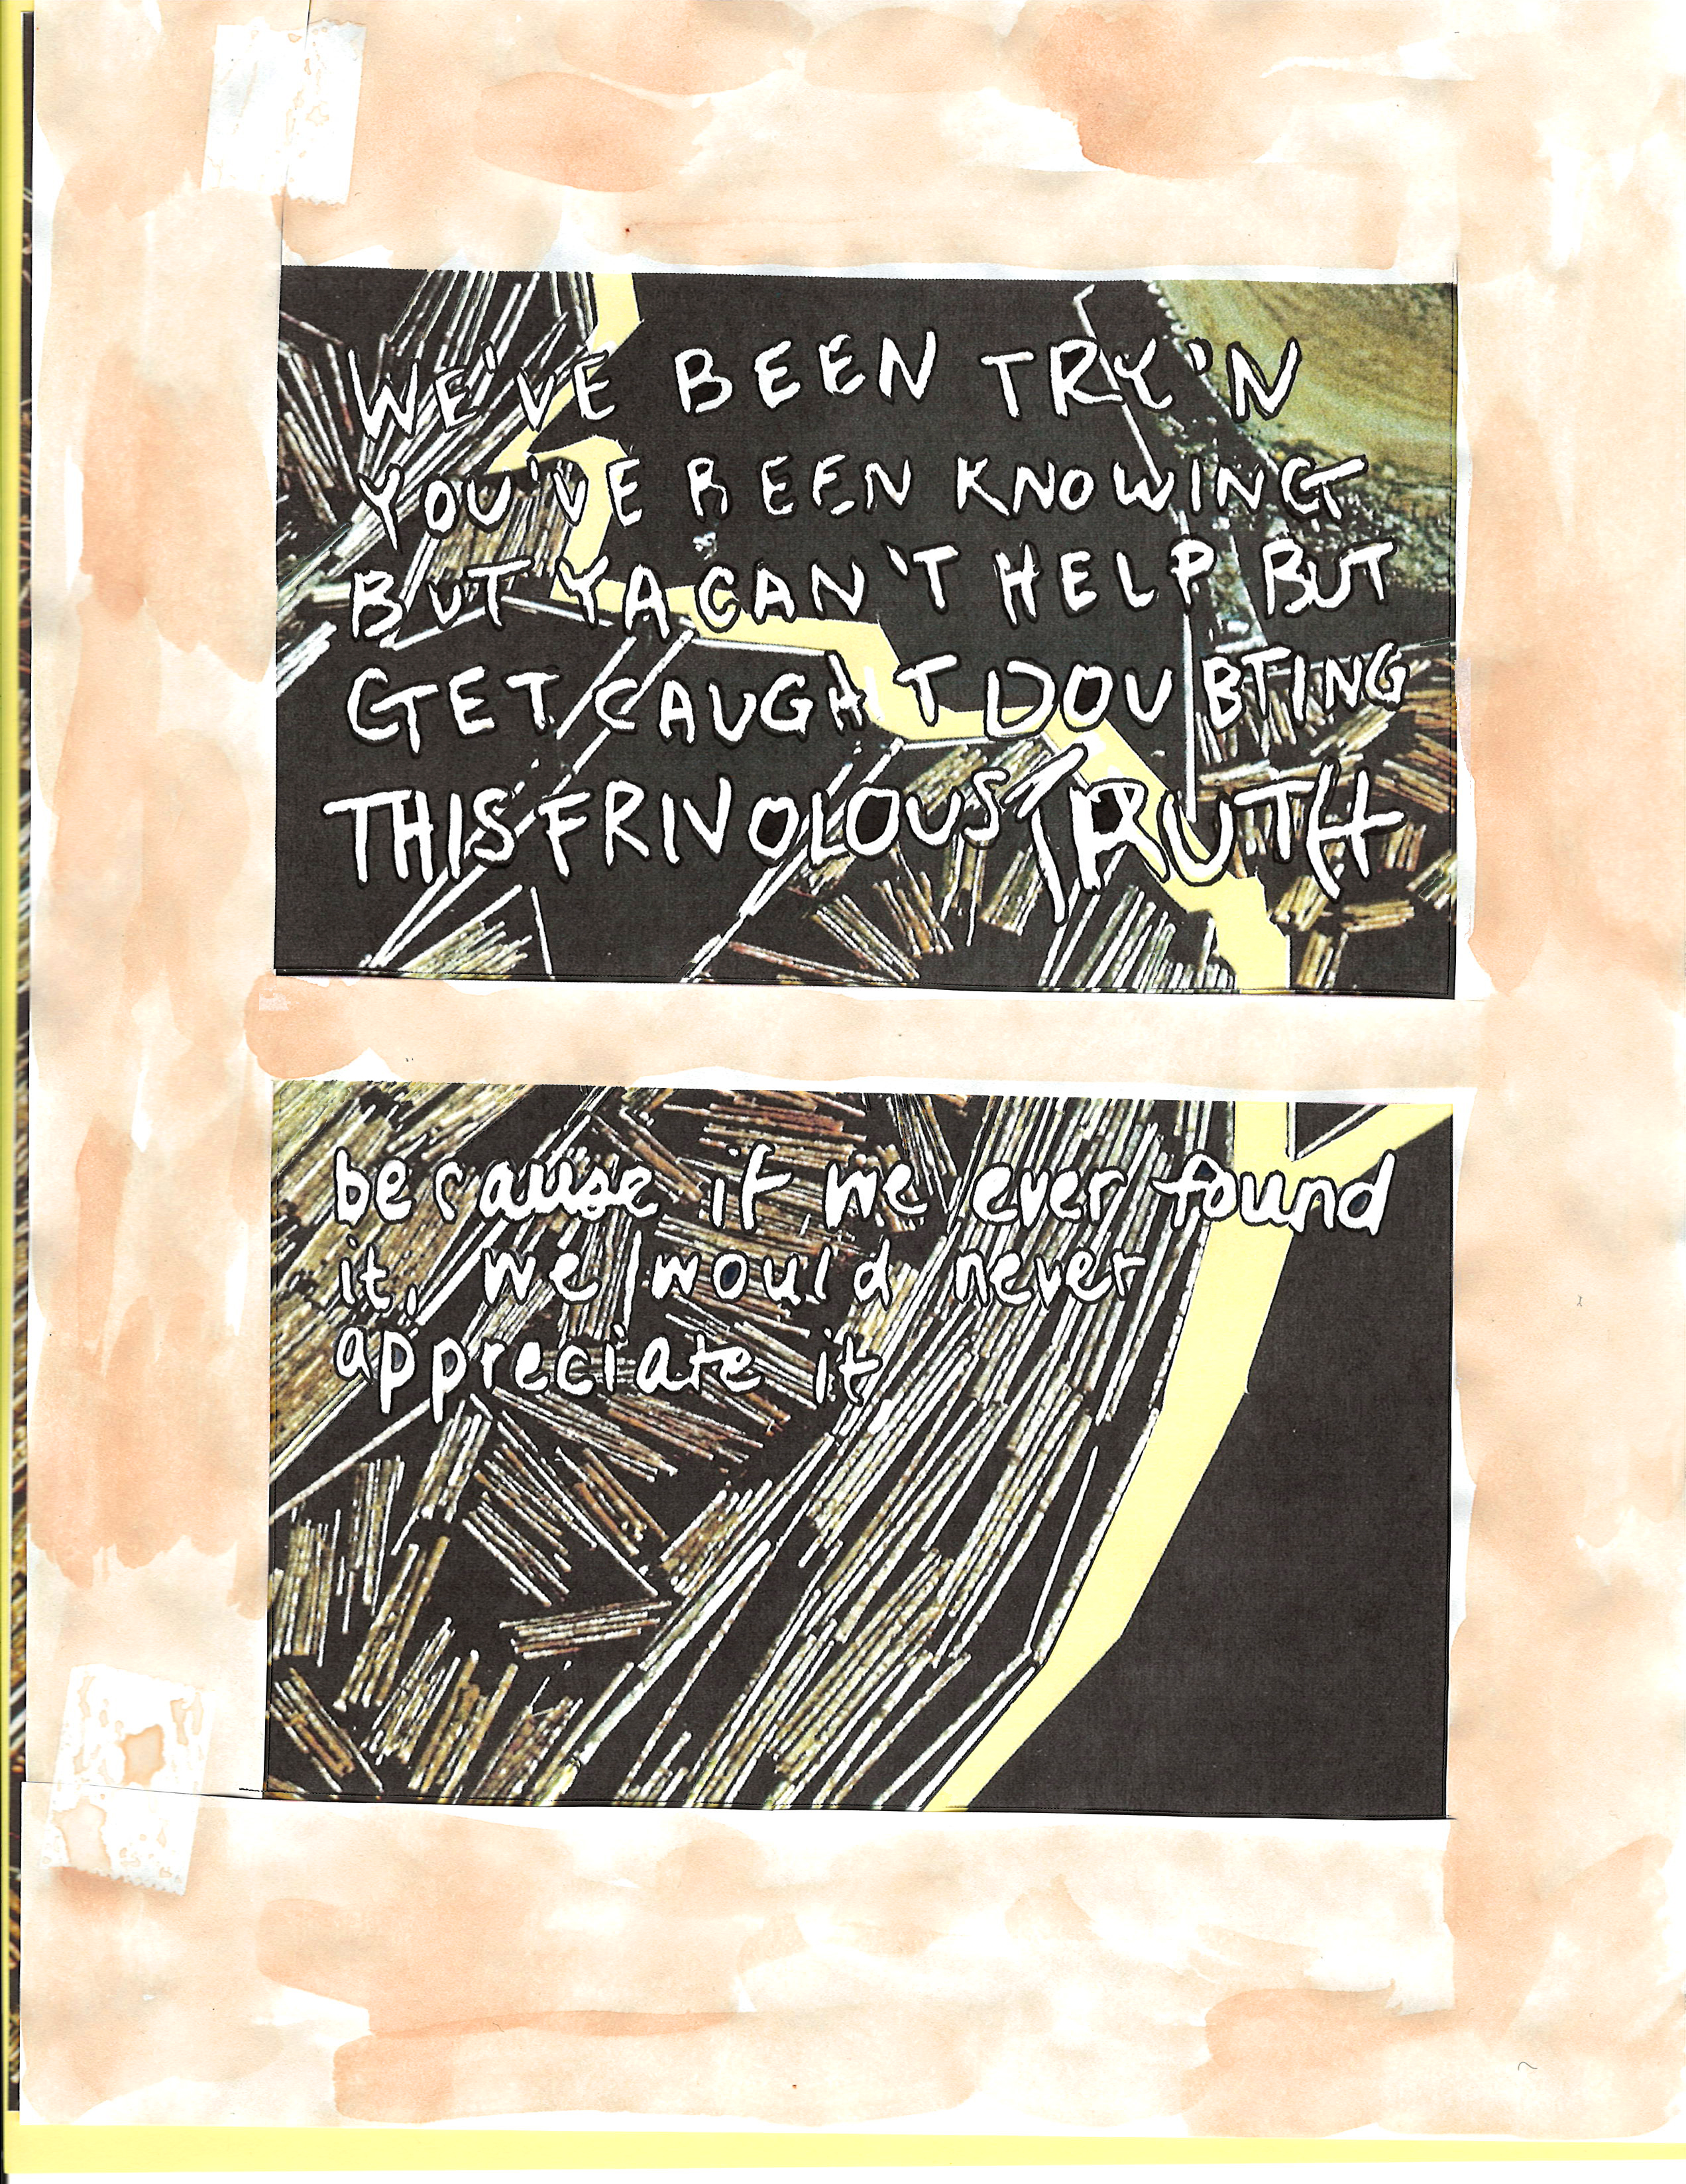 WE'VE BEEN TRY'N
YOU'VE BEEN KNOWING
BUT YA CAN'T HELP BUT
GET CAUGHT DOUBTING
THIS FRIVOLOUS TRUTH
because if we ever found
it, we would never
appreciate it